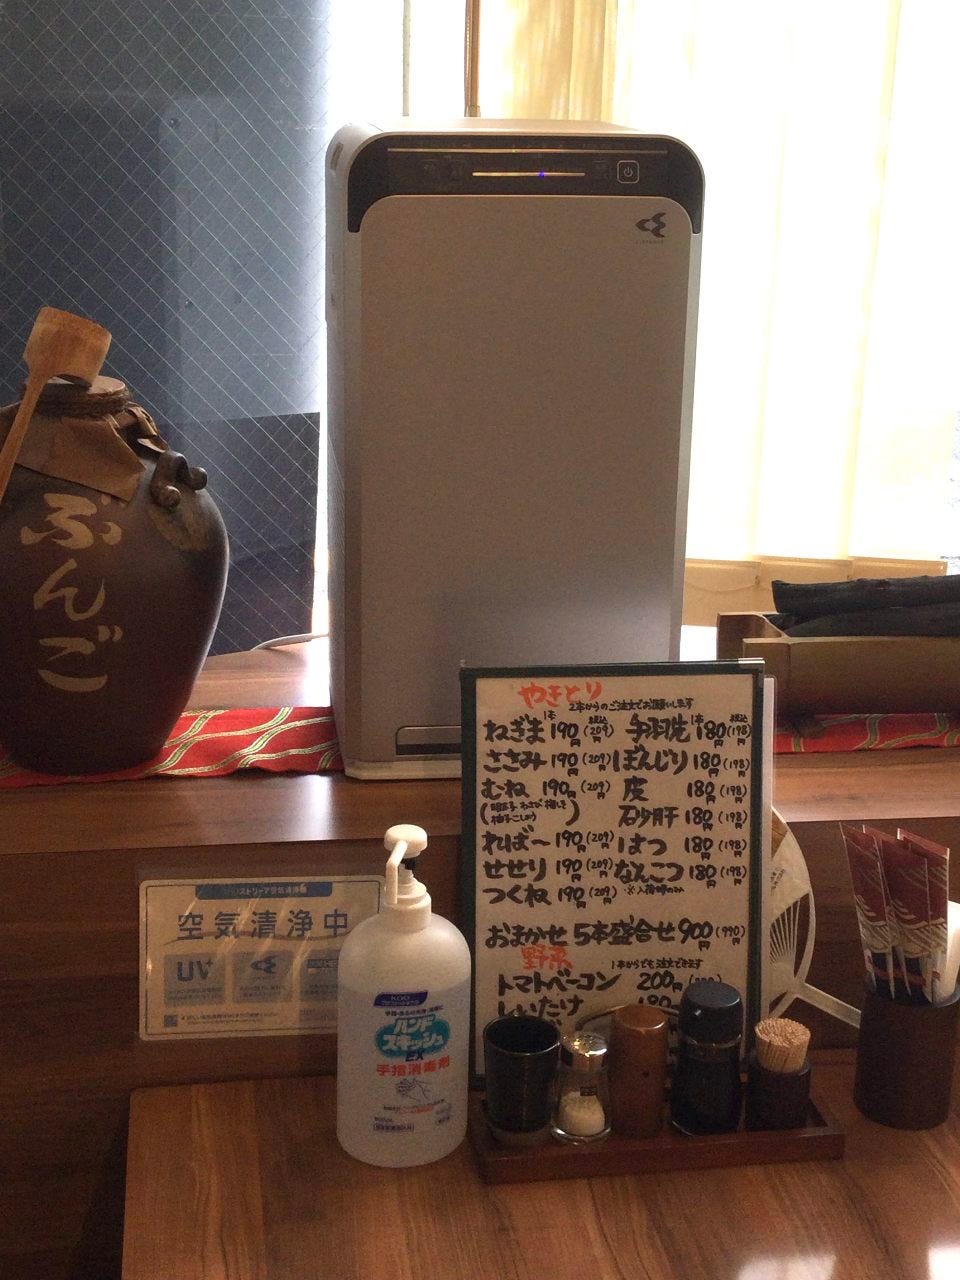 ぶんご
やきとり
2本からのご注文でお願いします
1本 税込 1本 税込
ねぎま 190円(209円) 手羽先 180円(198円)
ささみ 190円(209円) ぼんじり 180円(198)
むね 190円(209円) 皮 180円(198)
(明太子 わさび 梅しそ 柚子こしょう) 砂肝 180円(198)
ればー 190円(209円) はつ 180円(198)
せせり 190円(209円) なんこつ 180円(198)
つくね 190円(209) ※入荷時のみ
おまかせ 5本盛合せ 900円(990円)
野菜 1本からでも注文できます
トマトベーコン 200円
しいたけ 180
ストリーマ空気清浄
空気清浄中
UV
KAO
ハンド
スキッシュ
EX
手指消毒剤